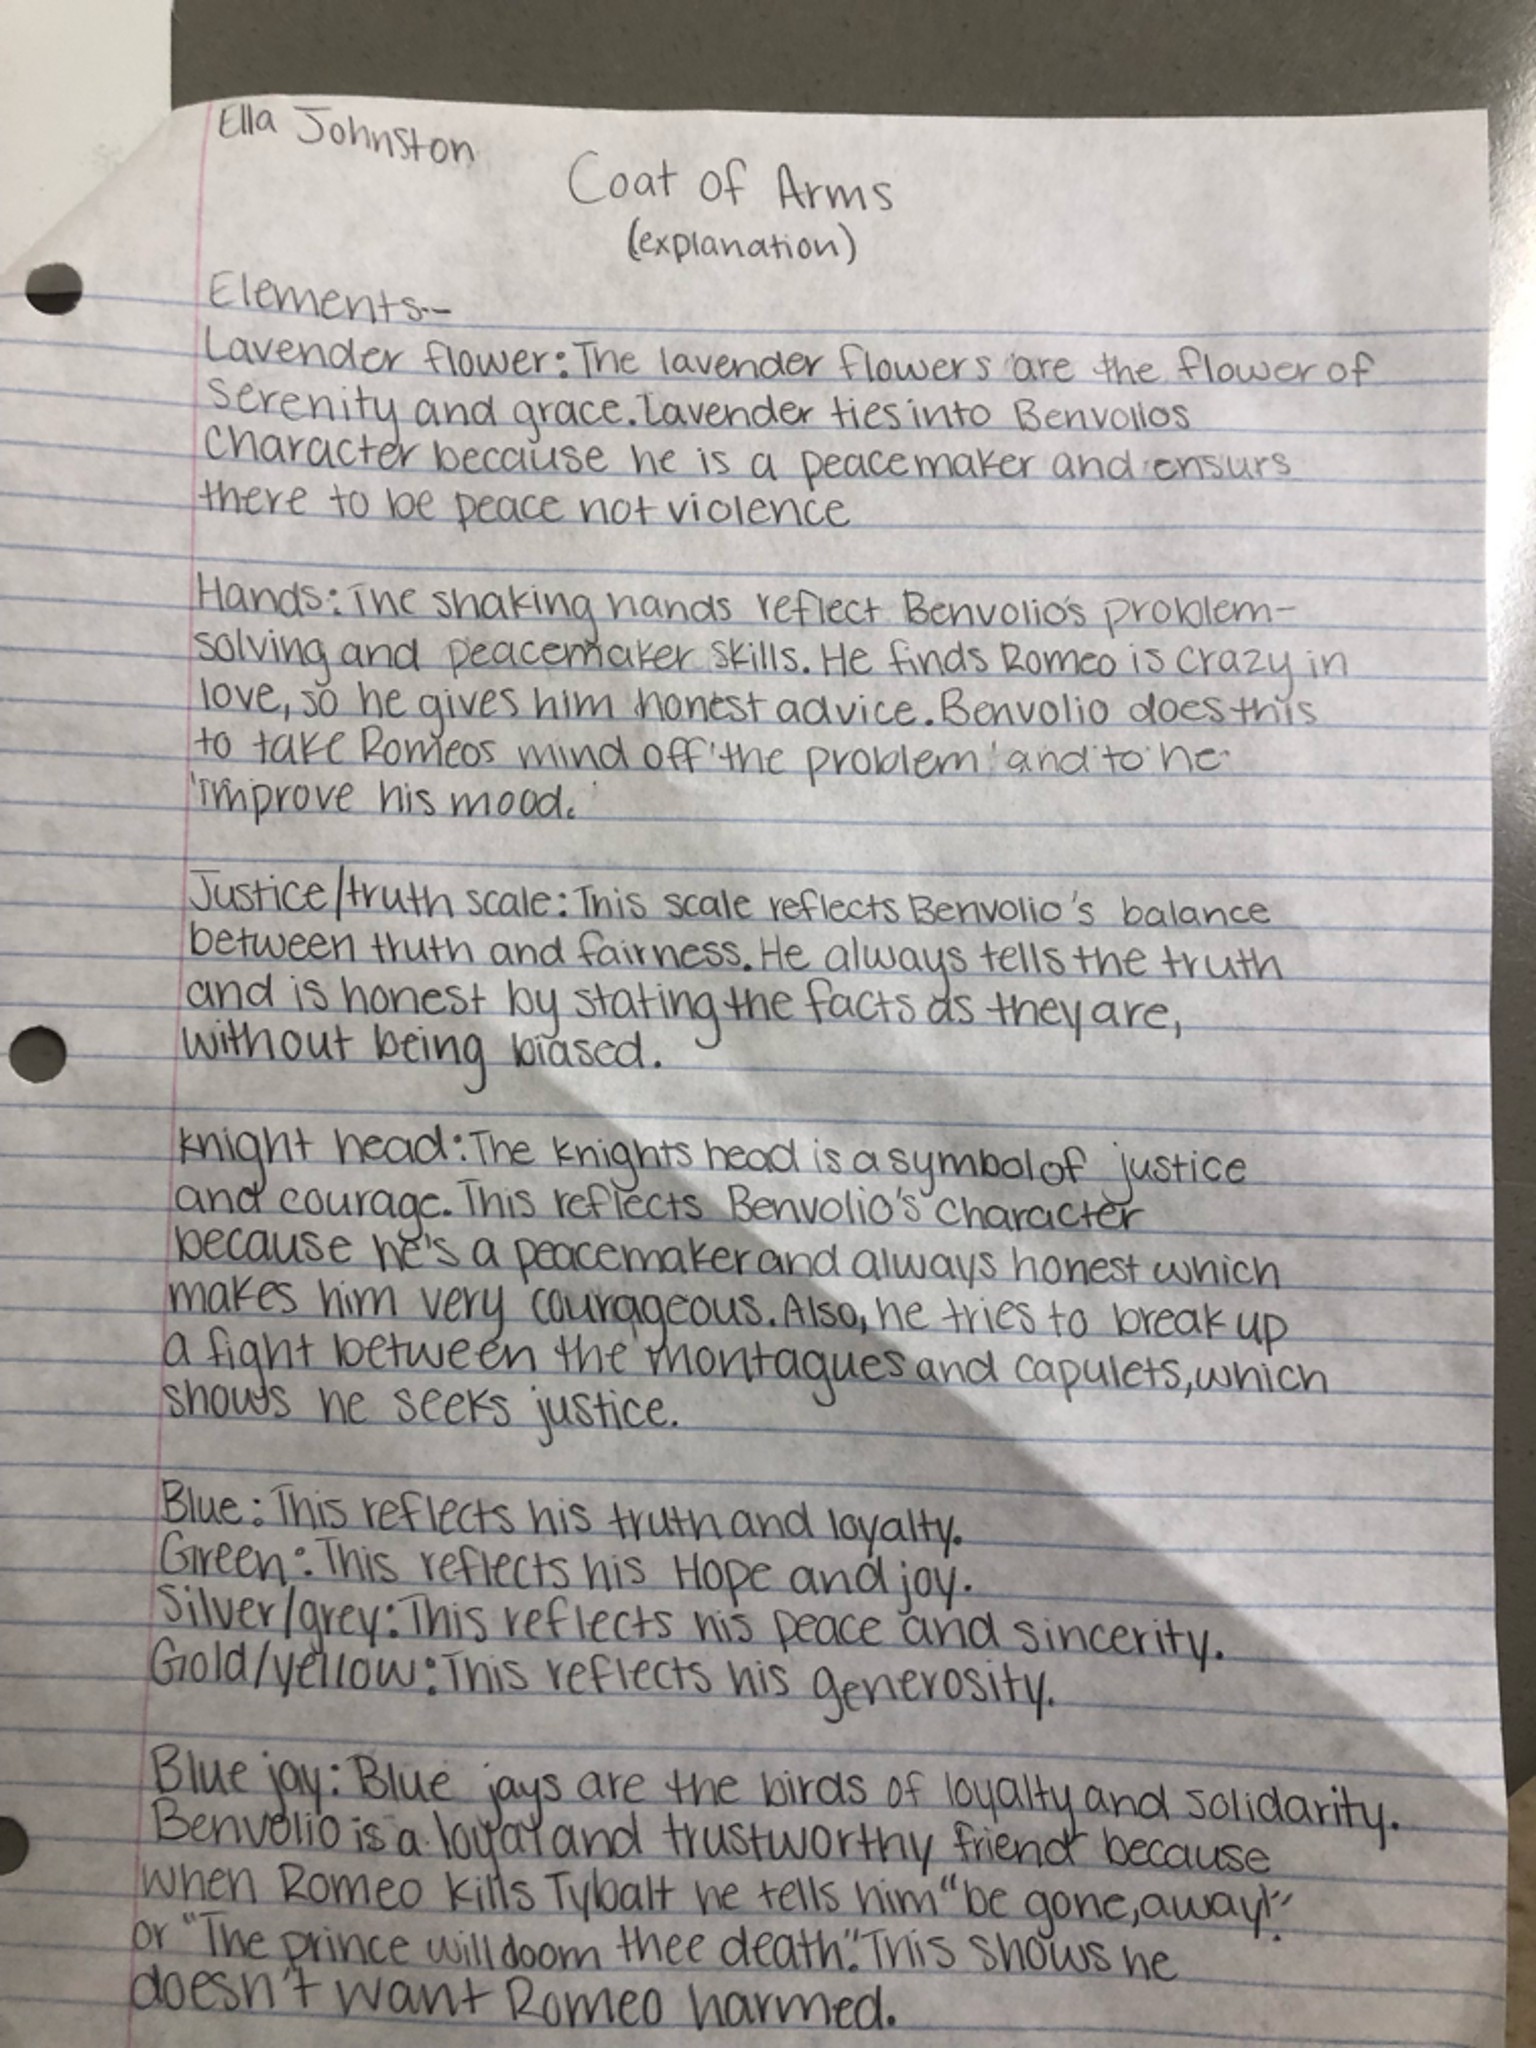 Ella Johnston
Coat of Arms
(explanation)
Elements--
Lavender flower: The lavender flowers are the flower of
serenity and grace. Lavender ties into Benvolios
character because he is a peacemaker and ensurs
there to be peace not violence
Hands: The shaking hands reflect Benvolio's problem-
solving and peacemaker skills. He finds Romeo is crazy in
love, so he gives him honest advice. Benvolio does this
to take Romeos mind off the problem and to he
improve his mood.
Justice/truth scale: This scale reflects Benvolio's balance
between truth and fairness. He always tells the truth
and is honest by stating the facts as they are,
without being biased.
knight head: The knights head is a symbol of justice
and courage. This reflects Benvolio's character
because he's a peacemaker and always honest which
makes him very courageous. Also, he tries to break up
a fight between the montagues and capulets, which
shows he seeks justice.
Blue: This reflects his truth and loyalty.
Green: This reflects his Hope and joy.
Silver/grey: This reflects his peace and sincerity.
Gold/yellow: This reflects his generosity.
Blue jay: Blue jays are the birds of loyalty and solidarity.
Benvolio is a loyal and trustworthy friend because
when Romeo kills Tybalt he tells him "be gone, away!"
or "The prince will doom thee death". This shows he
doesn't want Romeo harmed.